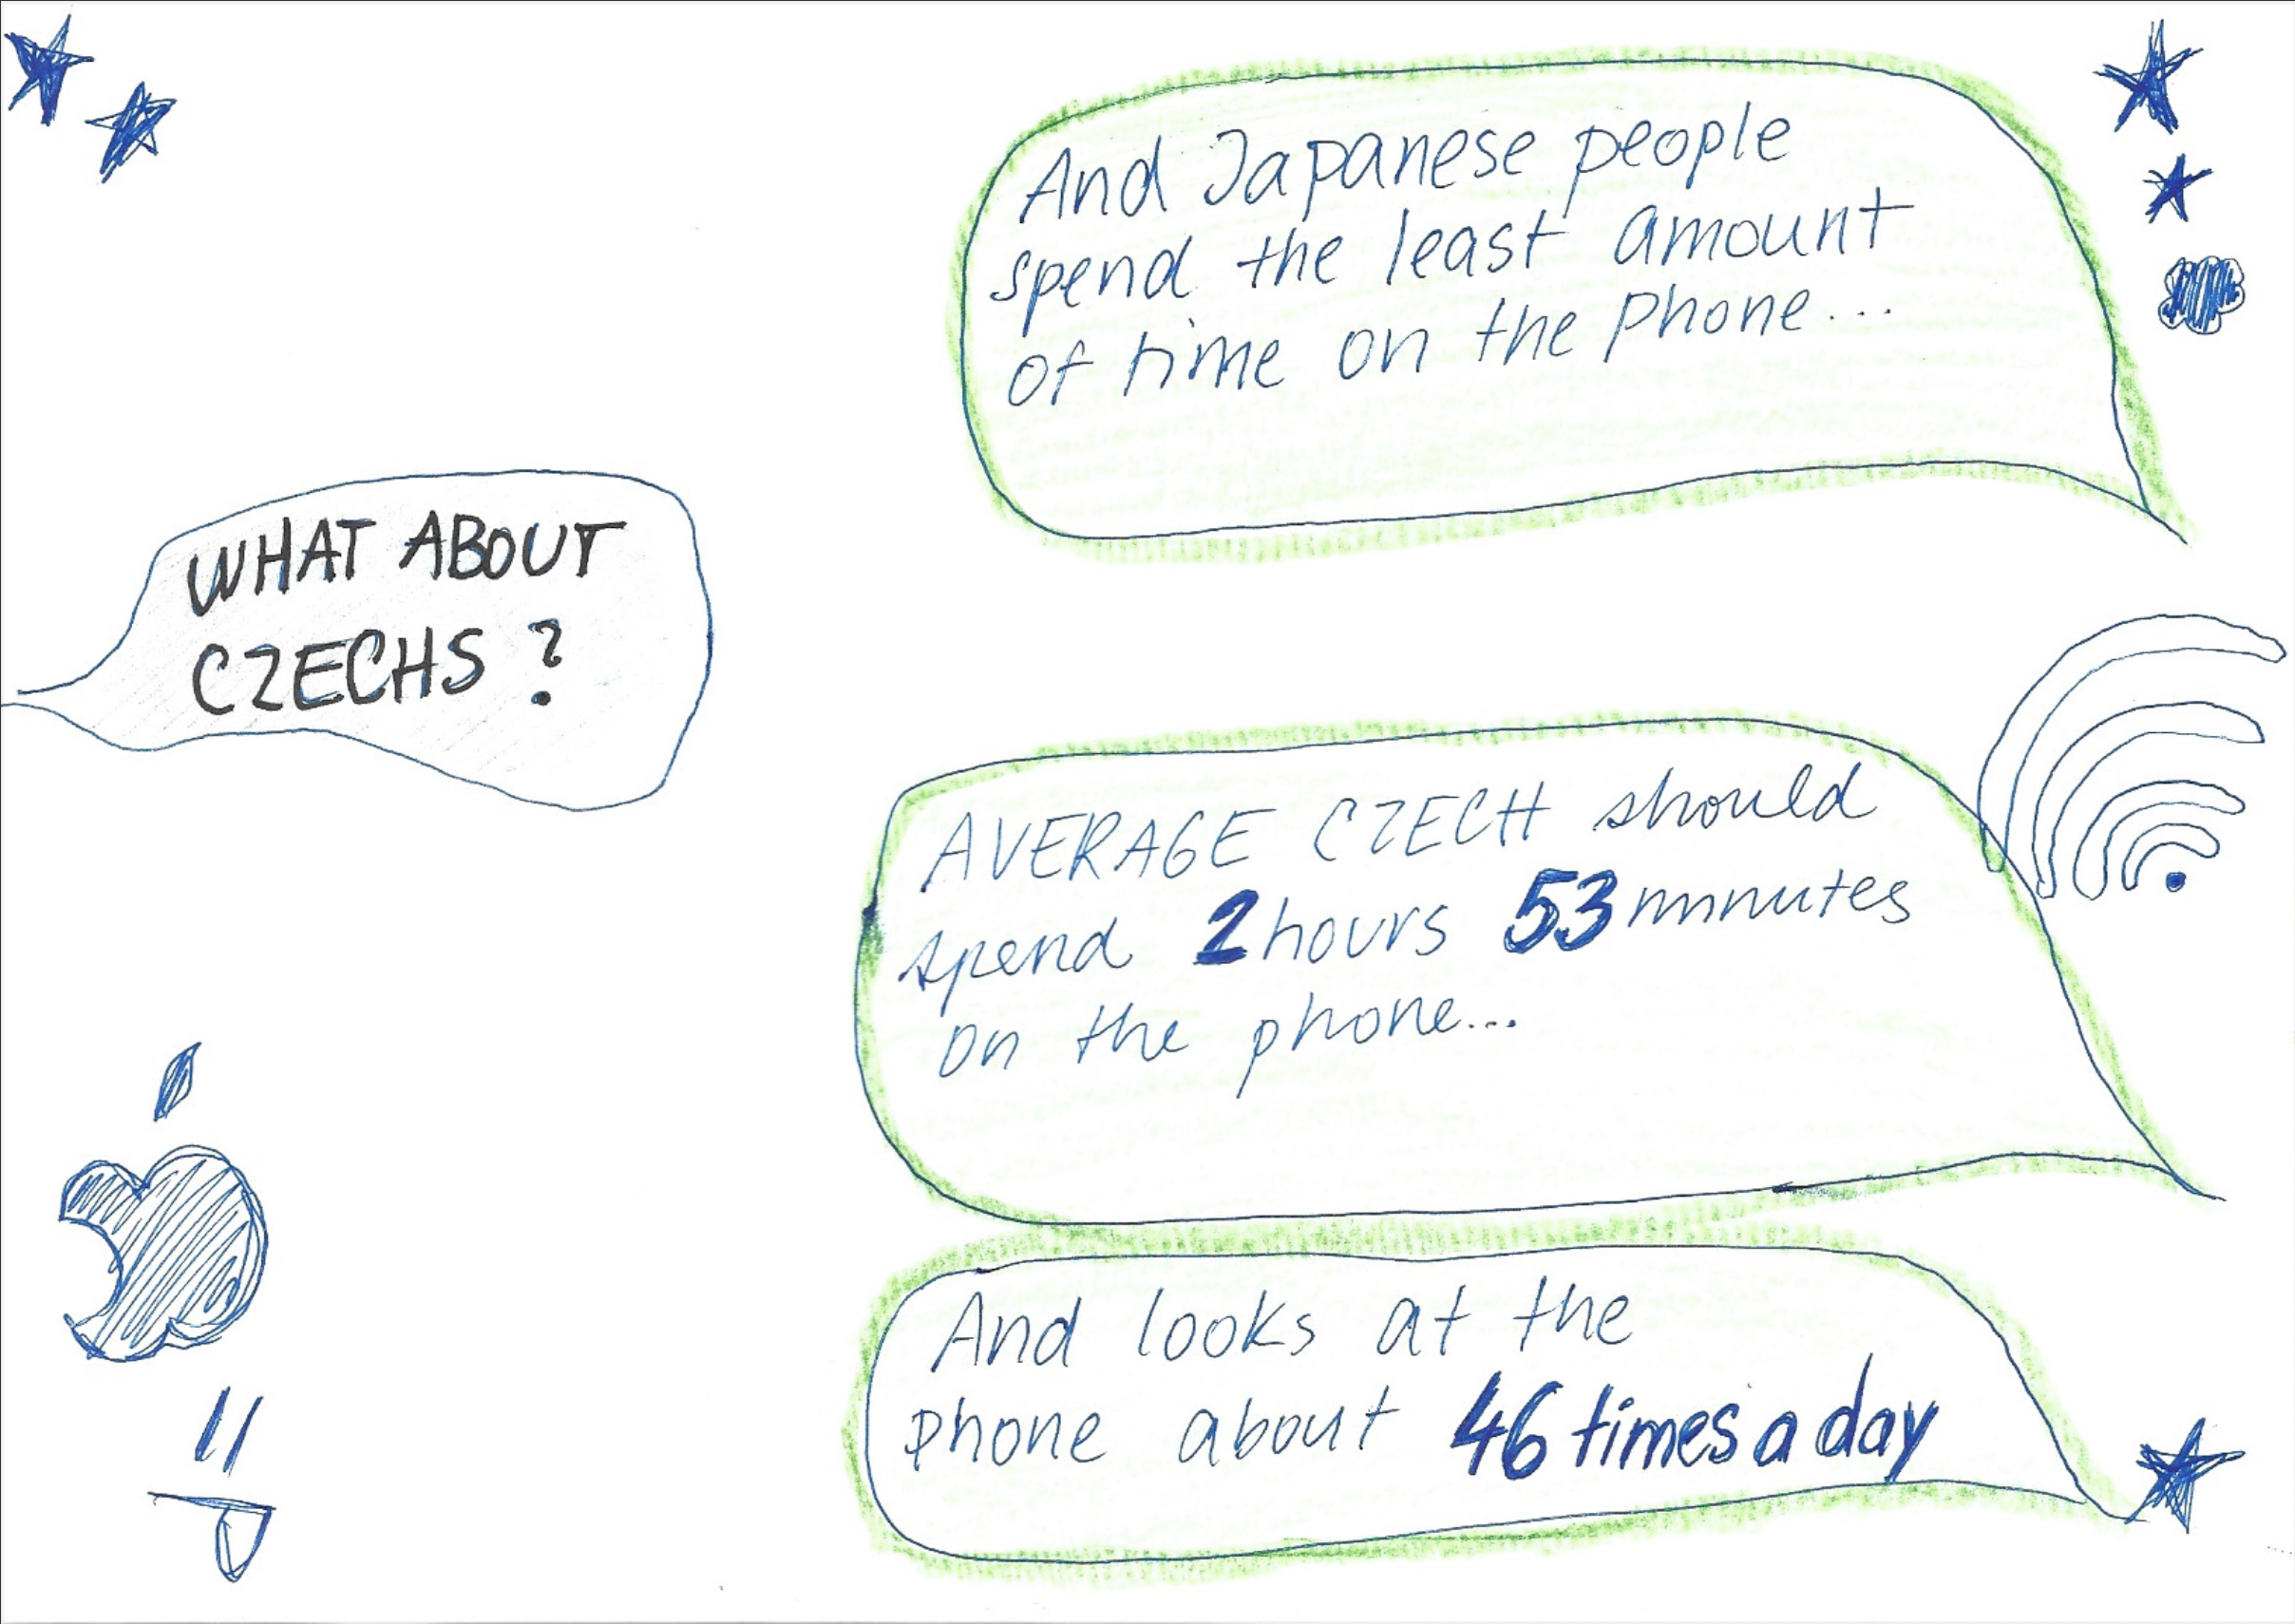 And Japanese people
spend the least amount
of time on the phone...
WHAT ABOUT
CZECHS ?
AVERAGE CZECH should
spend 2 hours 53 minutes
on the phone...
And looks at the
phone about 46 times a day